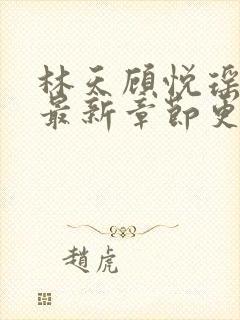 林天顾悦瑶
最新章节更
趙虎